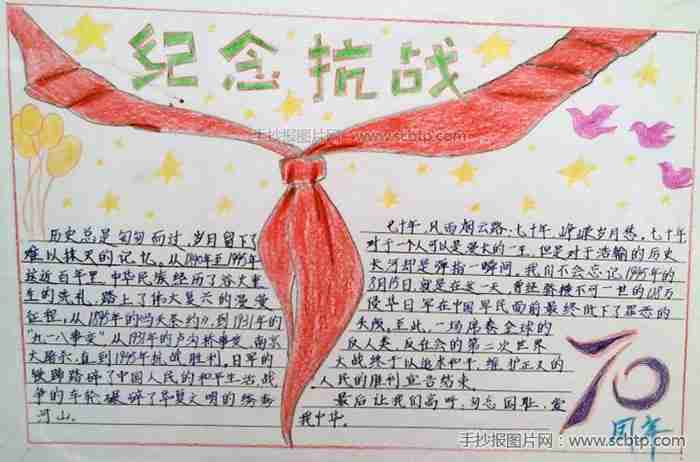 纪念抗战
手抄报图片网：www.scbtp.com
历史总是匆匆而过，岁月留下了
难以抹灭的记忆。从1840年至1945年
接近百年里，中华民族经历了
的洗礼，踏上了伟大复兴的漫漫
征程，从1895年的《马关条约》，到1931年的
“九一八事变”从1937年的卢沟桥事变、南京
大屠杀，直到1945年抗战胜利。日军的
铁蹄踏碎了中国人民的和平生活，战
争的车轮碾碎了华夏文明的锦绣
河山。
七十年，风雨烟云路，七十年，峥嵘岁月悠。七十年
对于一个人可以是漫长的一生，但是对于浩瀚的历史
长河却是弹指一瞬间。我们不会忘记，1945年的
8月15日，就是在这一天，曾经骄横不可一世的128万
侵华日军在中国军民面前最终放下了罪恶的
至此，一场席卷全球的
反人类、反社会的第二次世界
大战终于以追求和平、维护正义的
人民的胜利宣告结束。
最后让我们高呼，勿忘国耻，爱
我中华。
70
周年
手抄报图片网：www.scbtp.com